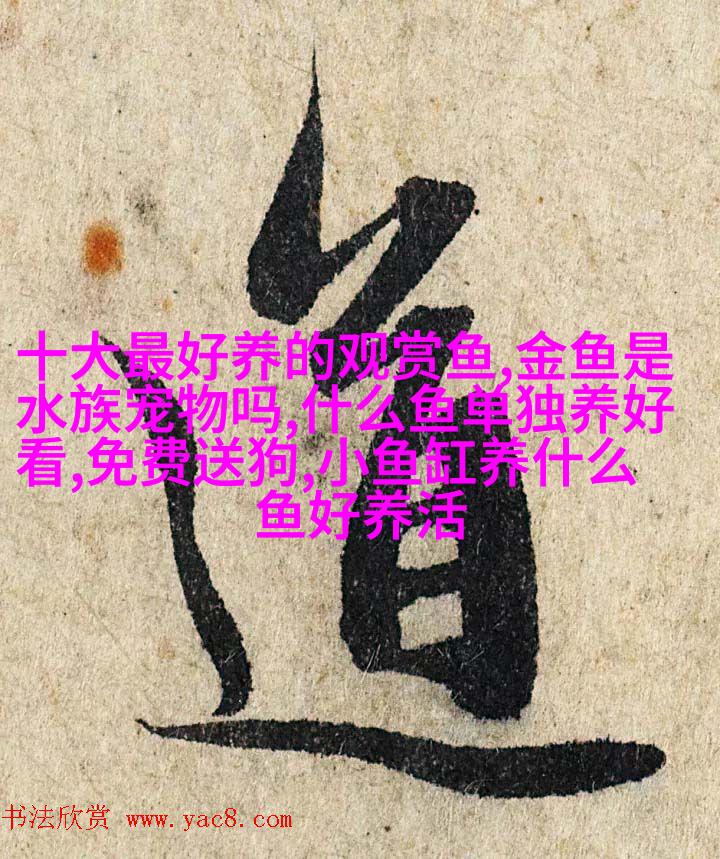 道
十大最好养的观赏鱼,金鱼是
水族宠物吗,什么鱼单独养好
看,免费送狗,小鱼缸养什么
鱼好养活
书法欣赏 www.yac8.com